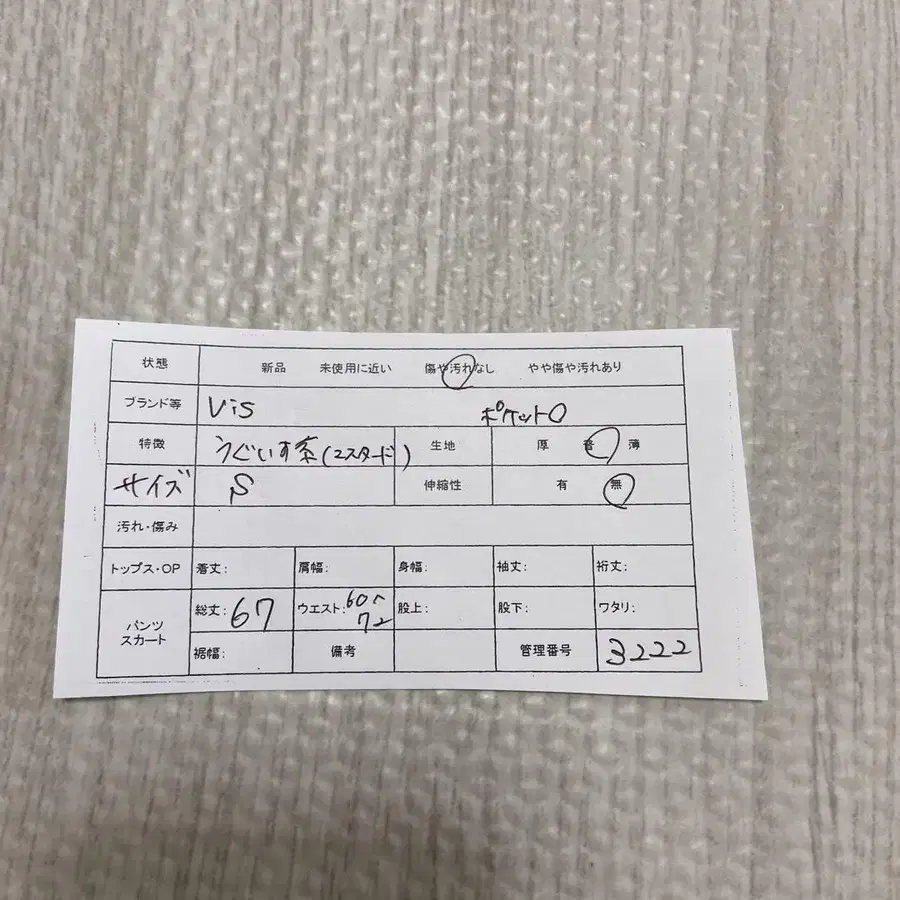 状態 新品 未使用に近い 傷や汚れなし やや傷や汚れあり
ブランド等 Vis ポケット〇
特徴 うぐいす茶(マスタード) 生地 厚 普 薄
サイズ S 伸縮性 有 無
汚れ・傷み
トップス・OP 着丈: 肩幅: 身幅: 袖丈: 裄丈:
パンツ スカート 総丈: 67 ウエスト: 60〜72 股上: 股下: ワタリ:
裾幅: 備考 管理番号 3222